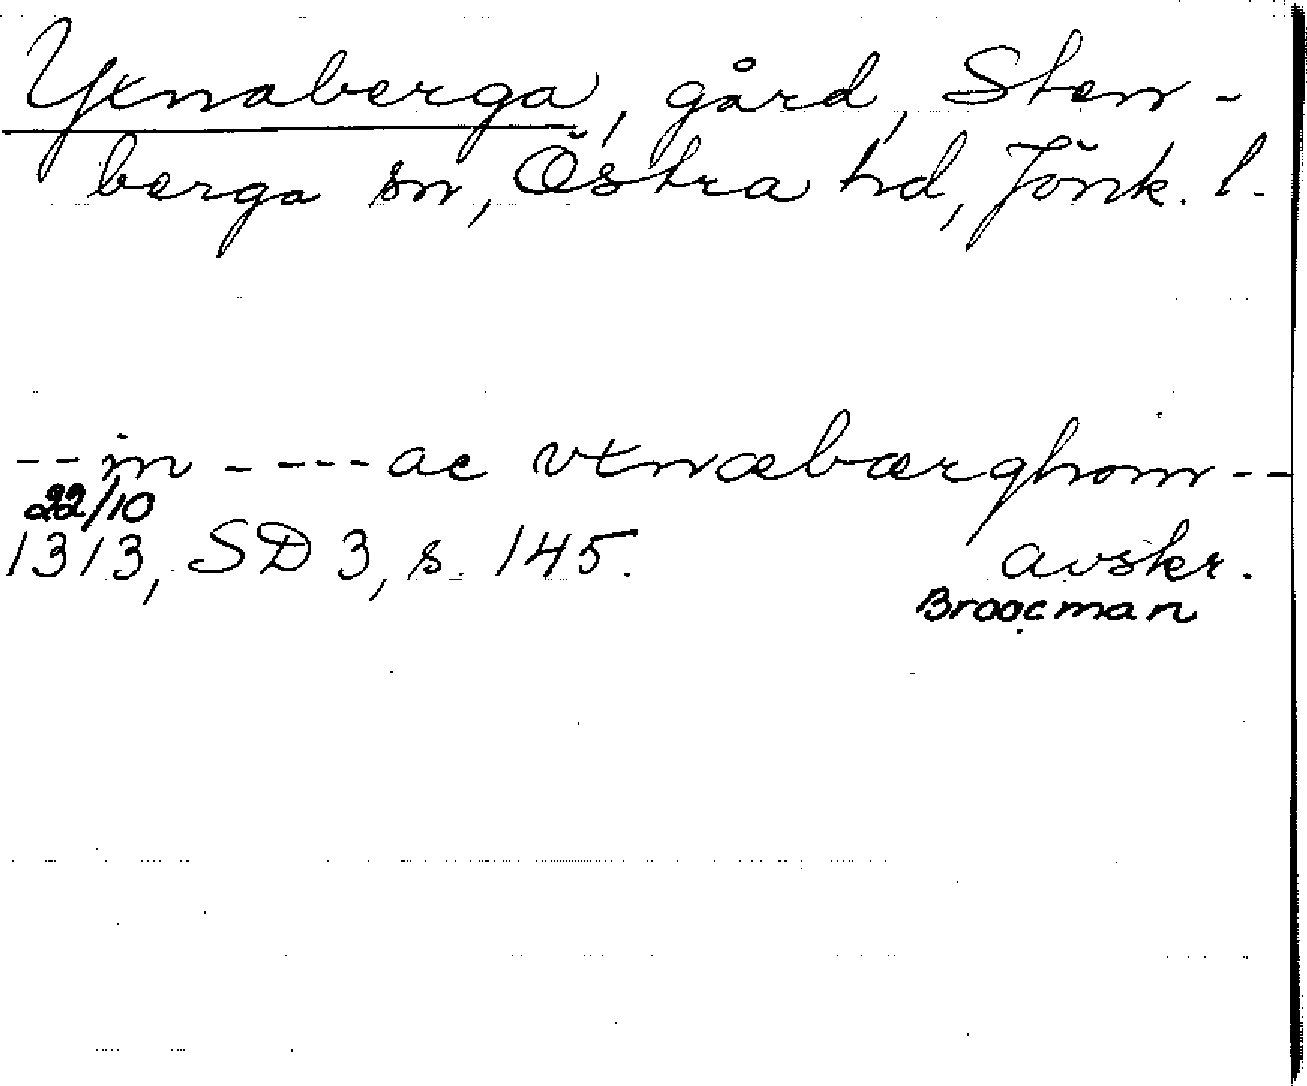 Yxnaberga, gård, Sten-
berga sn, Östra hd, Jönk. l.
--in - ---- ac vxnæbærghom --
22/10
1313, SD 3, s. 145. avskr.
Broocman